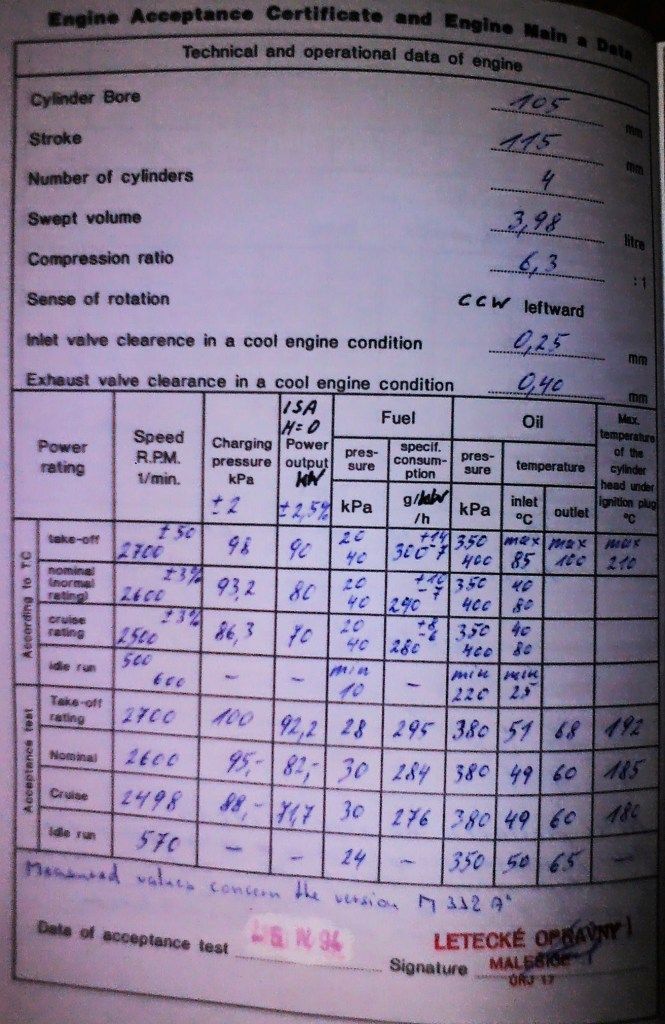 Engine Acceptance Certificate and Engine Main a Data
Technical and operational data of engine
Cylinder Bore 105 mm
Stroke 115 mm
Number of cylinders 4
Swept volume 3,98 litre
Compression ratio 6,3 :1
Sense of rotation CCW leftward
Inlet valve clearence in a cool engine condition 0,25 mm
Exhaust valve clearance in a cool engine condition 0,40 mm
Power rating
Speed R.P.M. 1/min.
Charging pressure kPa ±2
ISA H=0 Power output kW ±2,5%
Fuel
pres-sure kPa
specif. consum-ption g/kW /h
Oil
pres-sure kPa
temperature
inlet °C
outlet
Max. temperature of the cylinder head under ignition plug °C
According to TC
take-off 2700 ±50 98 90 20 40 300 +14 -7 350 400 max 85 max 100 max 210
nominal (normal rating) 2600 ±3% 93,2 80 20 40 290 +10 -7 350 400 40 80
cruise rating 2500 ±3% 86,3 70 20 40 280 +8 -6 350 400 40 80
idle run 500 600 - - min 10 - min 220 min 25
Acceptance test
Take-off rating 2700 100 92,2 28 295 380 51 68 192
Nominal 2600 95,- 82,- 30 284 380 49 60 185
Cruise 2498 88,- 71,7 30 276 380 49 60 180
Idle run 570 - - 24 - 350 50 65 -
Measured values concern the version M 332 A"
Date of acceptance test IV 94
Signature
LETECKÉ OPRAVNY
MALEŠICE
ORJ 17